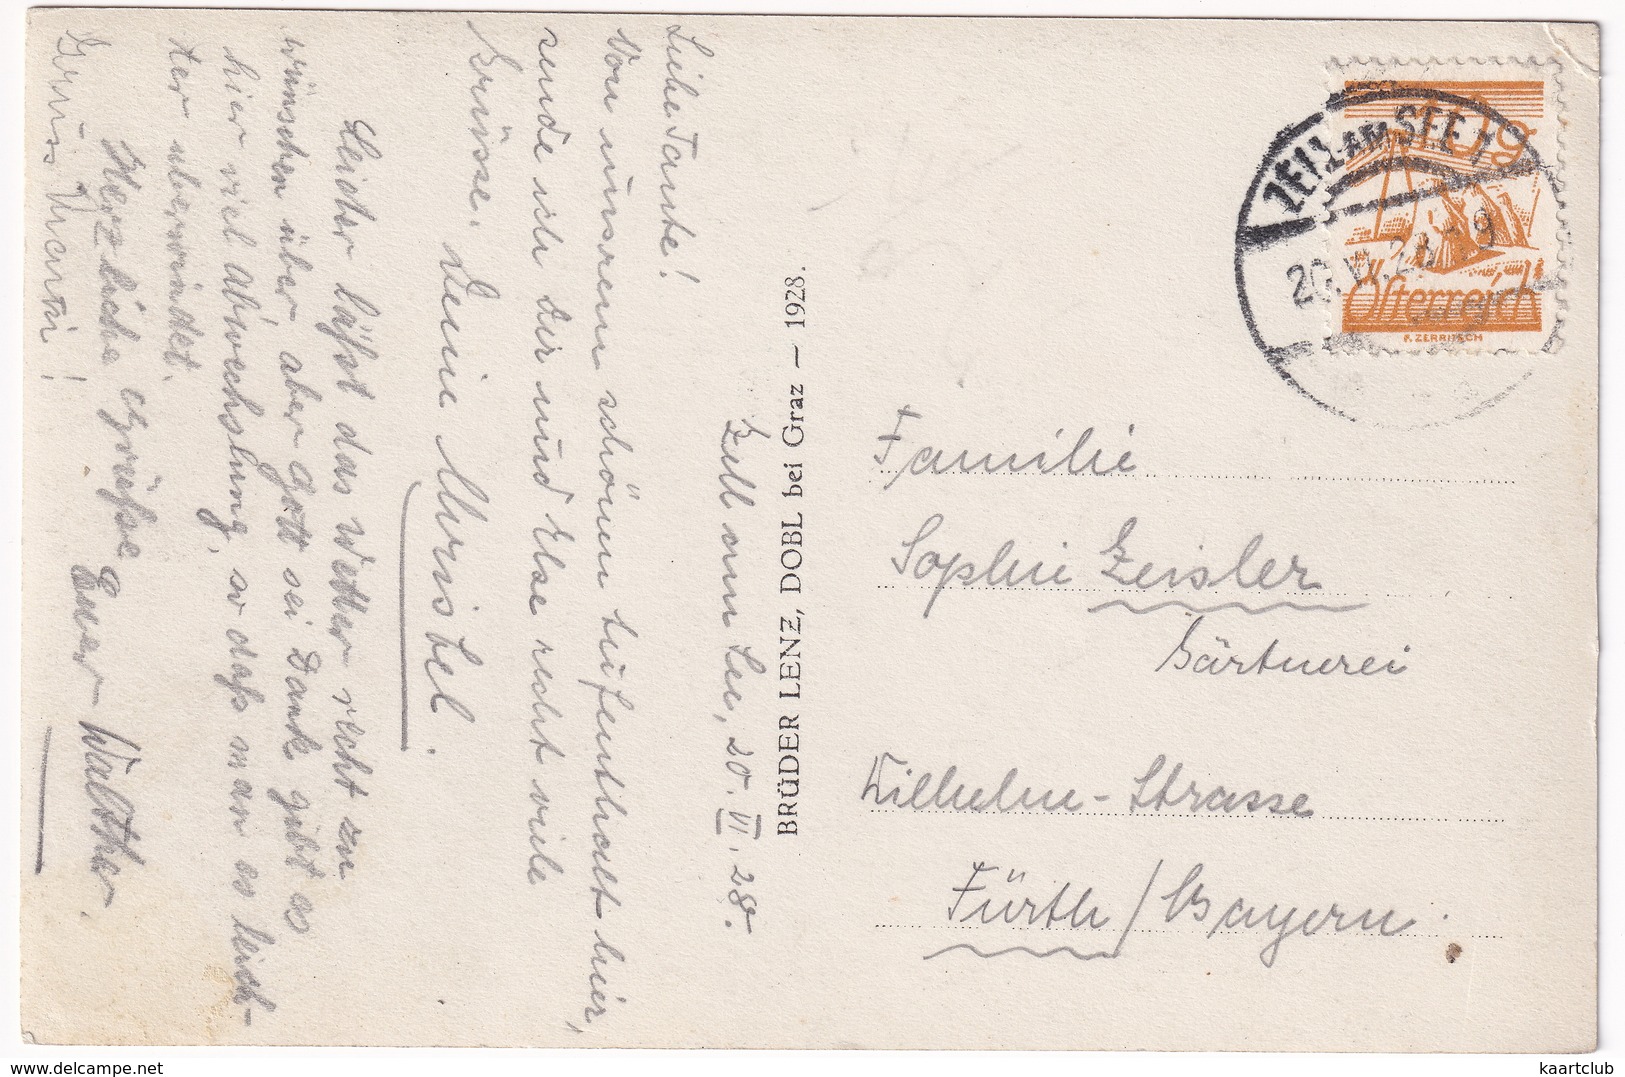 Zell am See, 20. VI. 28.
Liebe Tante!
Von unserem schönen Aufenthalt hier,
sende ich dir und Else recht viele
Grüsse. Deine Christel.
Leider läßt das Wetter recht zu
wünschen über, aber Gott sei Dank gibt es
hier viel Abwechslung, so daß man es leich-
ter überwindet.
Herzliche Grüße Euer Walther.
Gruss
BRÜDER LENZ, DOBL bei Graz — 1928.
ZELL AM SEE 1
20.VI.28
10g
Österreich
F. ZERRITSCH
Familie
Sophie Zeisler
Gärtnerei
Wilhelm-Strasse
Fürth/Bayern.
kaartclub
www.delcampe.net